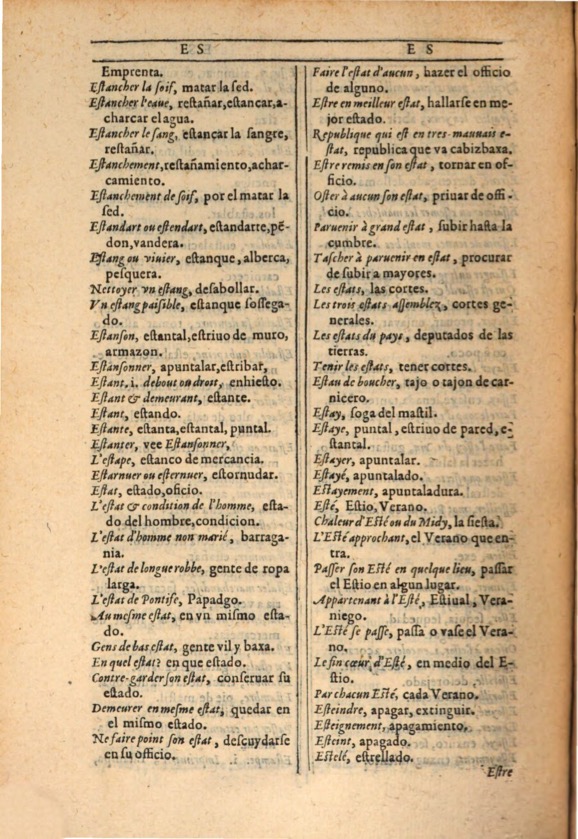 E S
Emprenta.
Estancher la soif, matar la sed.
Estancher l'eaue, restañar,estancar,a-
charcar el agua.
Estancher le sang, estançar la sangre,
restañar.
Estanchement,restañamiento,achar-
camiento.
Estanchement de soif, por el matar la
sed.
Estandart ou estendart, estandarte,pē-
don,vandera.
Estang ou viuier, estanque, alberca,
pesquera.
Nettoyer vn estang, desabollar.
Vn estang paisible, estanque sossega-
do.
Estanson, estantal,estriuo de muro,
armazon.
Estansonner, apuntalar,estribar,
Estant, i. debout ou droit, enhiesto.
Estant & demeurant, estante.
Estant, estando.
Estante, estanta,estantal, puntal.
Estanter, vee Estansonner,
L'estape, estanco de mercancia.
Estarnuer ou esternuer, estornudar.
Estat, estado,oficio.
L'estat & condition de l'homme, esta-
do del hombre,condicion.
L'estat d'homme non marié, barraga-
nia.
L'estat de longue robbe, gente de ropa
larga.
L'estat de Pontife, Papadgo.
Au mesme estat, en vn mismo esta-
do.
Gens de bas estat, gente vil y baxa.
En quel estat? en que estado.
Contre-garder son estat, conseruar su
estado.
Demeurer en mesme estat, quedar en
el mismo estado.
Ne faire point son estat, descuydarse
en su officio.
E S
Faire l'estat d'aucun, hazer el officio
de alguno.
Estre en meilleur estat, hallarse en me-
jor estado.
Republique qui est en tres-mauuais e-
stat, republica que va cabizbaxa.
Estre remis en son estat, tornar en of-
ficio.
Oster à aucun son estat, priuar de offi-
cio.
Paruenir à grand estat, subir hasta la
cumbre.
Tascher à paruenir en estat, procurar
de subir a mayores.
Les estats, las cortes.
Les trois estats assemblez, cortes ge-
nerales.
Les estats du pays, deputados de las
tierras.
Tenir les estats, tener cortes.
Estau de boucher, tajo o tajon de car-
nicero.
Estay, soga del mastil.
Estaye, puntal, estriuo de pared, e-
stantal.
Estayer, apuntalar.
Estayé, apuntalado.
Estayement, apuntaladura.
Esté, Estio, Verano.
Chaleur d'Esté ou du Midy, la siesta.
L'Esté approchant, el Verano que en-
tra.
Passer son Esté en quelque lieu, passar
el Estio en algun lugar.
Appartenant à l'Esté, Estiual, Vera-
niego.
L'Esté se passe, passa o vase el Vera-
no.
Le fin cœur d'Esté, en medio del E-
stio.
Par chacun Esté, cada Verano.
Esteindre, apagar, extinguir.
Esteignement, apagamiento.
Esteint, apagado.
Estelé, estrellado.
Estre